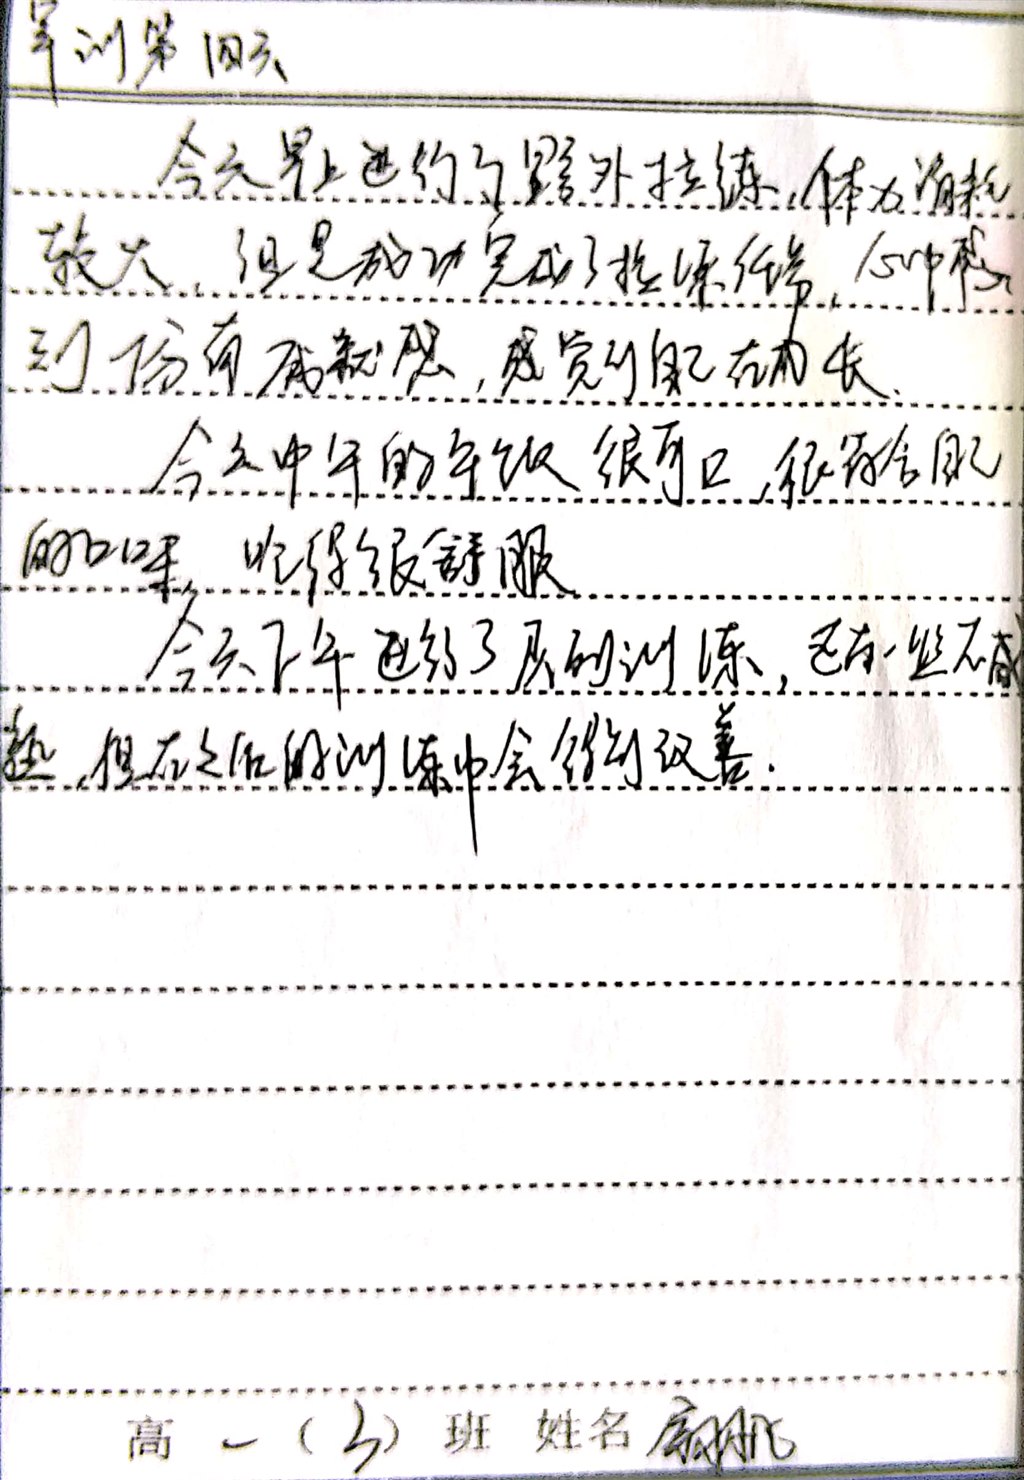 军训第四天
今天早上进行了野外拉练,体力消耗
较大,但是成功完成了拉练任务,心中感
到十分有成就感,感觉到自己在成长.
今天中午的午饭很可口,很符合自己
的口味,吃得很舒服
今天下午进行了队列训练,还有一些不成
熟,但在之后的训练中会得到改善.
高一(3)班 姓名